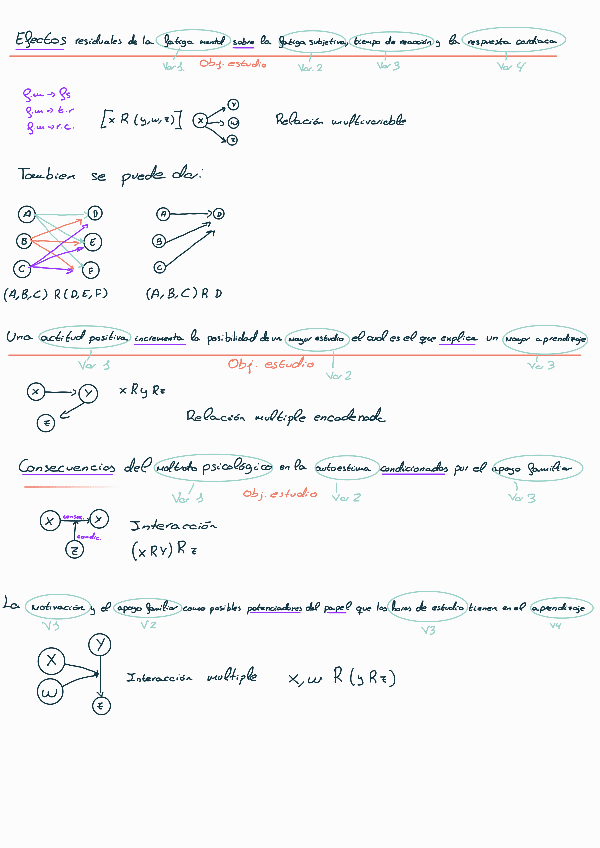 Efectos residuales de la fatiga mental sobre la fatiga subjetiva, tiempo de reacción y la respuesta cardiaca
Var 1 Obj. estudio Var. 2 Var 3 Var 4
f.m → fs
f.m → t.r
f.m → r.c.
[x R (y,w,z)] X Y W Z Relación multivariable
Tambien se puede dar:
A D A D
B E B
C F C
(A,B,C) R (D,E,F) (A,B,C) R D
Una actitud positiva, incrementa la posibilidad de un mayor estudio el cual es el que explica un mayor aprendizaje
Var 1 Obj. estudio Var 2 Var 3
X Y x R y R z
Z
Relación multiple encadenada
Consecuencias del maltrato psicológico en la autoestima condicionados por el apoyo familiar
Var 1 Obj. estudio Var 2 Var 3
X consec. Y Interacción
Z condic. (x R Y) R z
La motivación y el apoyo familiar como posibles potenciadores del papel que las horas de estudio tienen en el aprendizaje
V1 V2 V3 V4
X Y
W Z Interacción multiple x, w R (y R z)